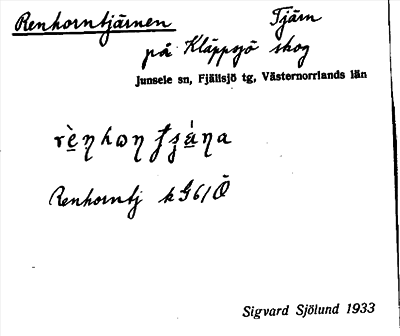 Renhorntjärnen Tjärn
på Kläppsjö skog
Junsele sn, Fjällsjö tg, Västernorrlands län
Renhorntj k G61Ö
Sigvard Sjölund 1933